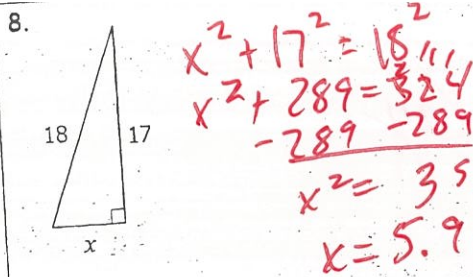 8.
18
17
x
x² + 17² = 18²
x² + 289 = 324
-289 -289
x² = 35
x = 5.9